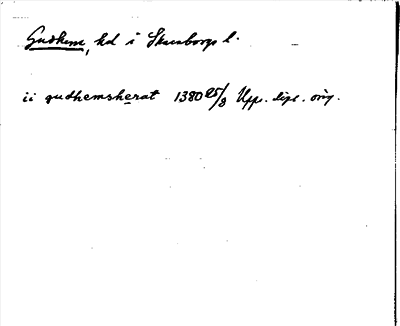 Gudhem, hd i Skaraborgs l.
ii gudhemsherat 1380 25/3 Upps. dipl. orig.